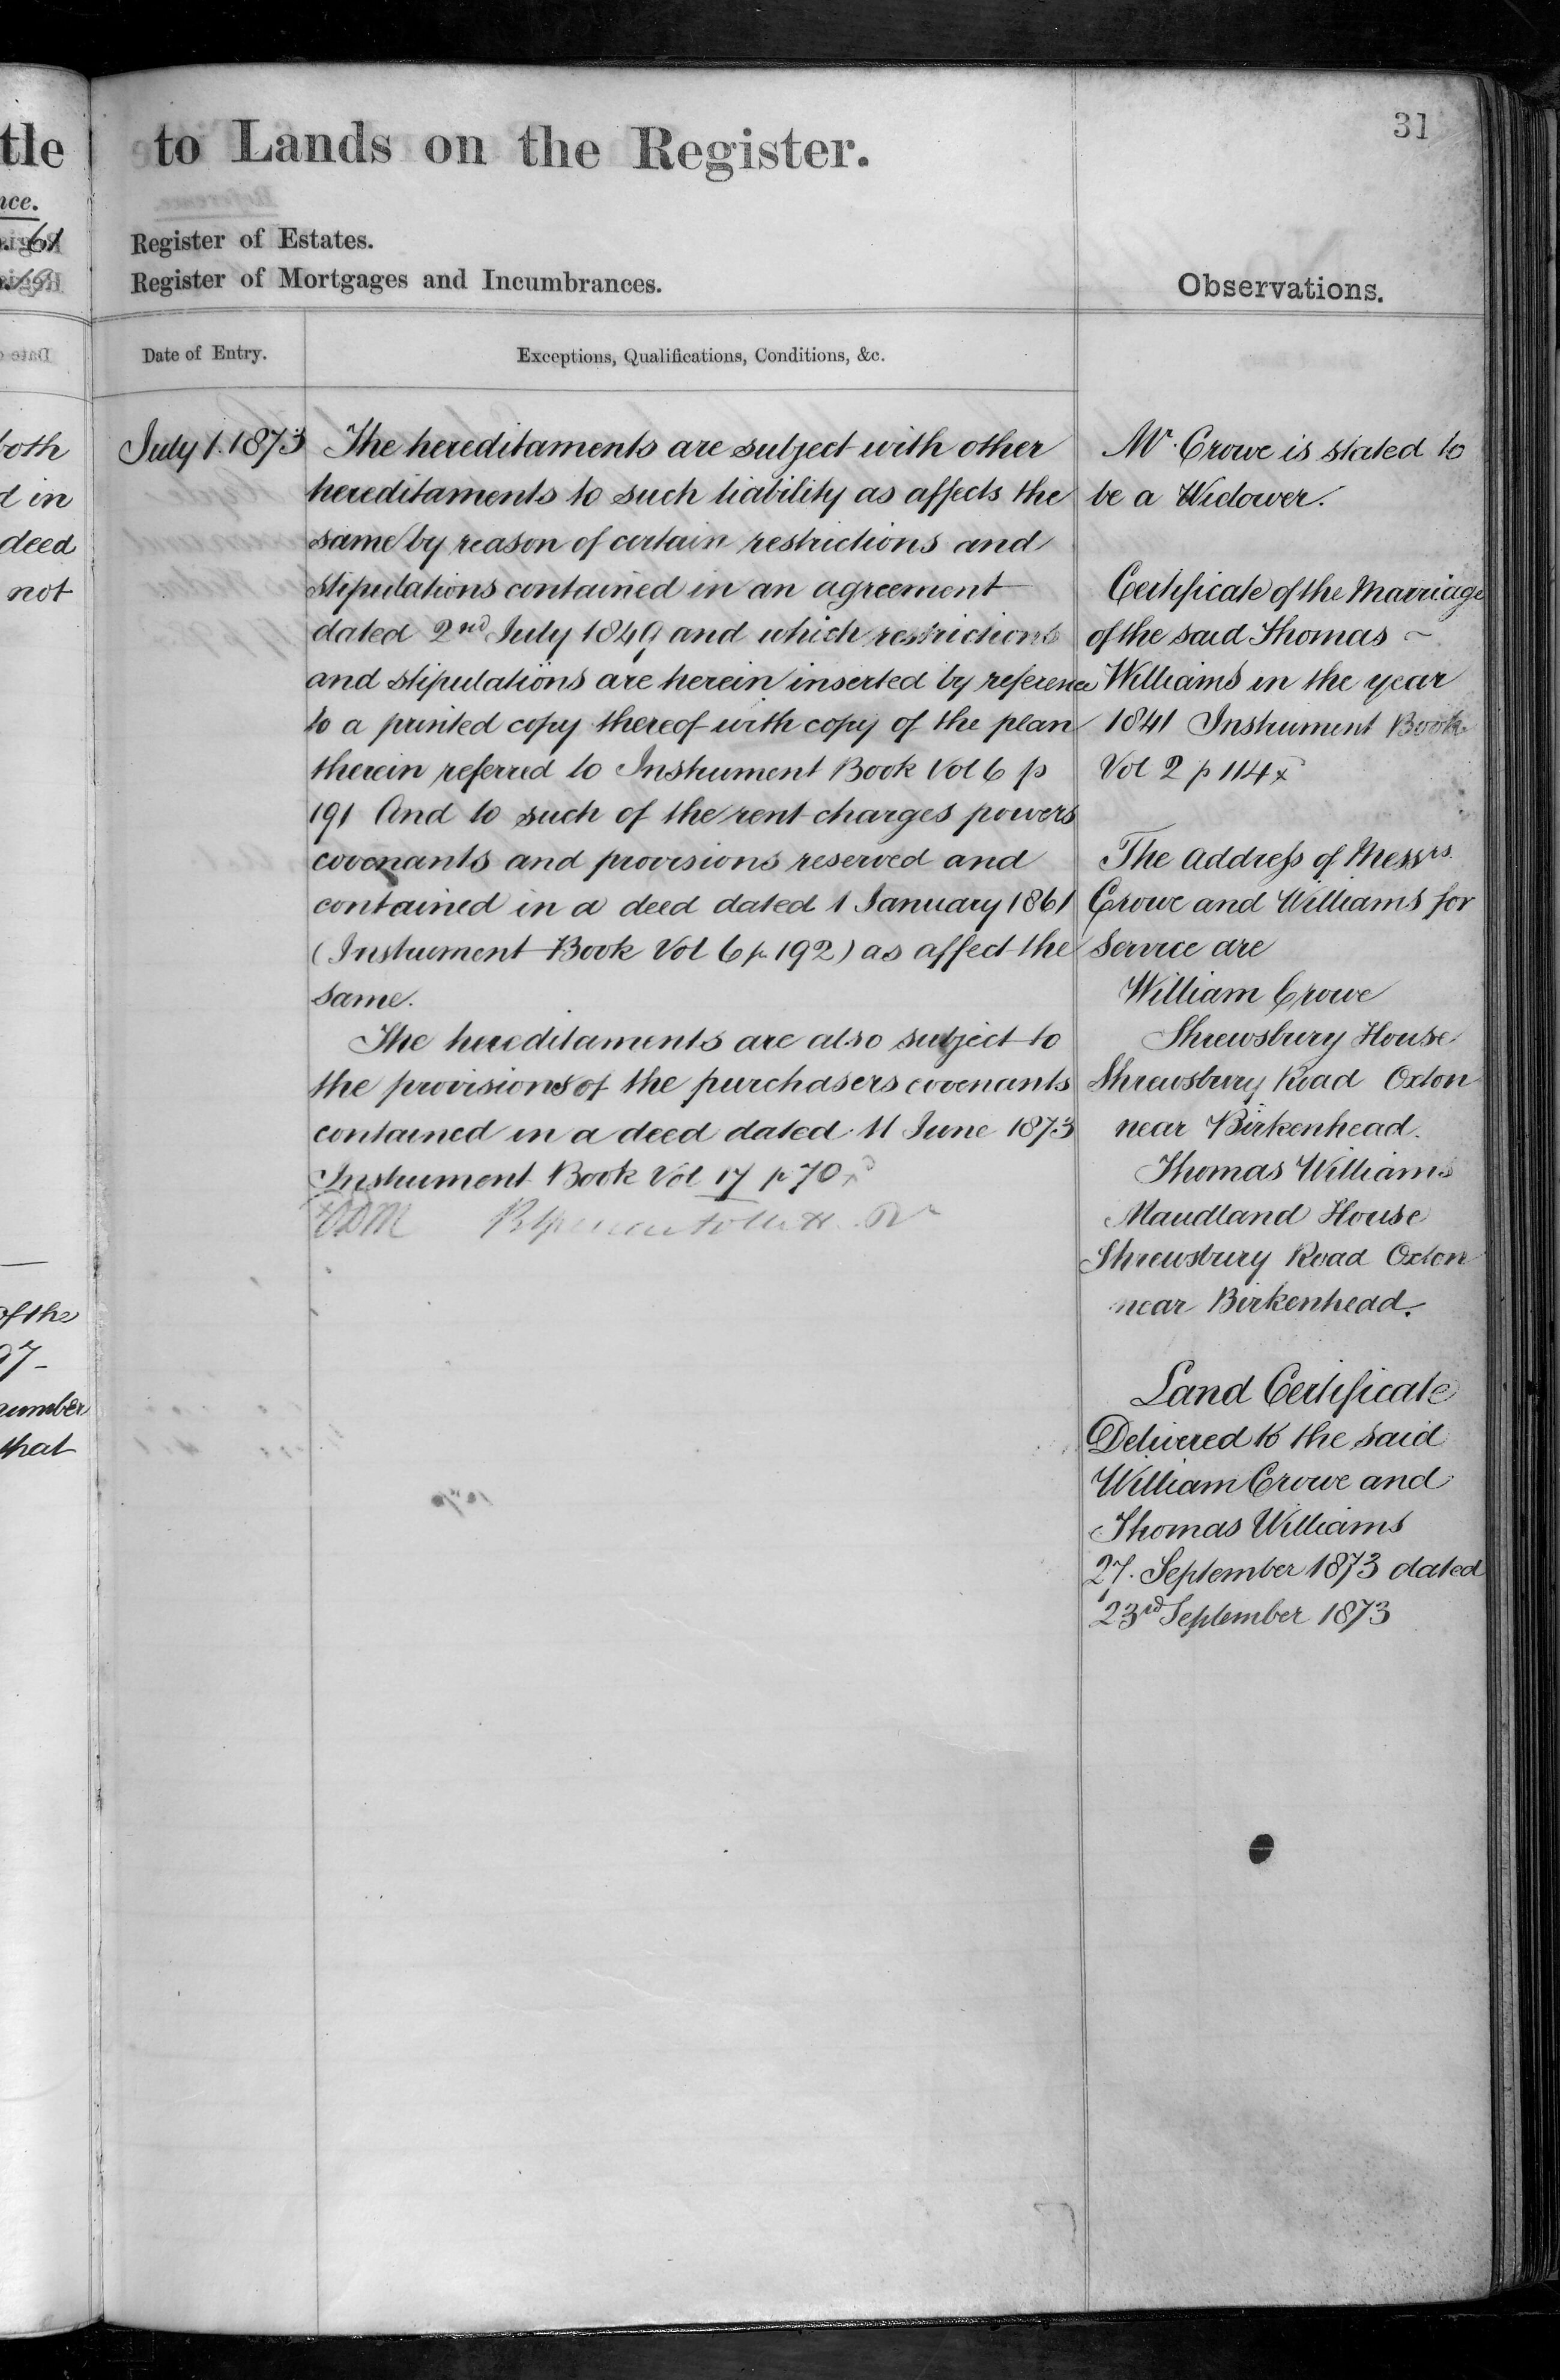 tle
to Lands on the Register.
31
nce.
61
Register of Estates.
Register of Mortgages and Incumbrances.
Observations.
Date of Entry.
Exceptions, Qualifications, Conditions, &c.
both
d in
deed
not
of the
97-
number
that
July 1. 1873
The hereditaments are subject with other
hereditaments to such liability as affects the
same by reason of certain restrictions and
stipulations contained in an agreement
dated 2nd July 1849 and which restrictions
and stipulations are herein inserted by reference
to a printed copy thereof with copy of the plan
therein referred to Instrument Book Vol 6 p
191 And to such of the rent charges powers
covenants and provisions reserved and
contained in a deed dated 1 January 1861
(Instrument Book Vol 6 p 192) as affect the
same.
The hereditaments are also subject to
the provisions of the purchasers covenants
contained in a deed dated 11 June 1873
Instrument Book Vol 17 p 70
Mr. Crowe is stated to
be a Widower.
Certificate of the Marriage
of the said Thomas ~
Williams in the year
1841 Instrument Book
Vol 2 p 114 x
The Address of Messrs.
Crowe and Williams for
Service are
William Crowe
Shrewsbury House
Shrewsbury Road Oxton
near Birkenhead.
Thomas Williams
Maudland House
Shrewsbury Road Oxton
near Birkenhead.
Land Certificate
Delivered to the said
William Crowe and
Thomas Williams
27. September 1873 dated
23rd September 1873